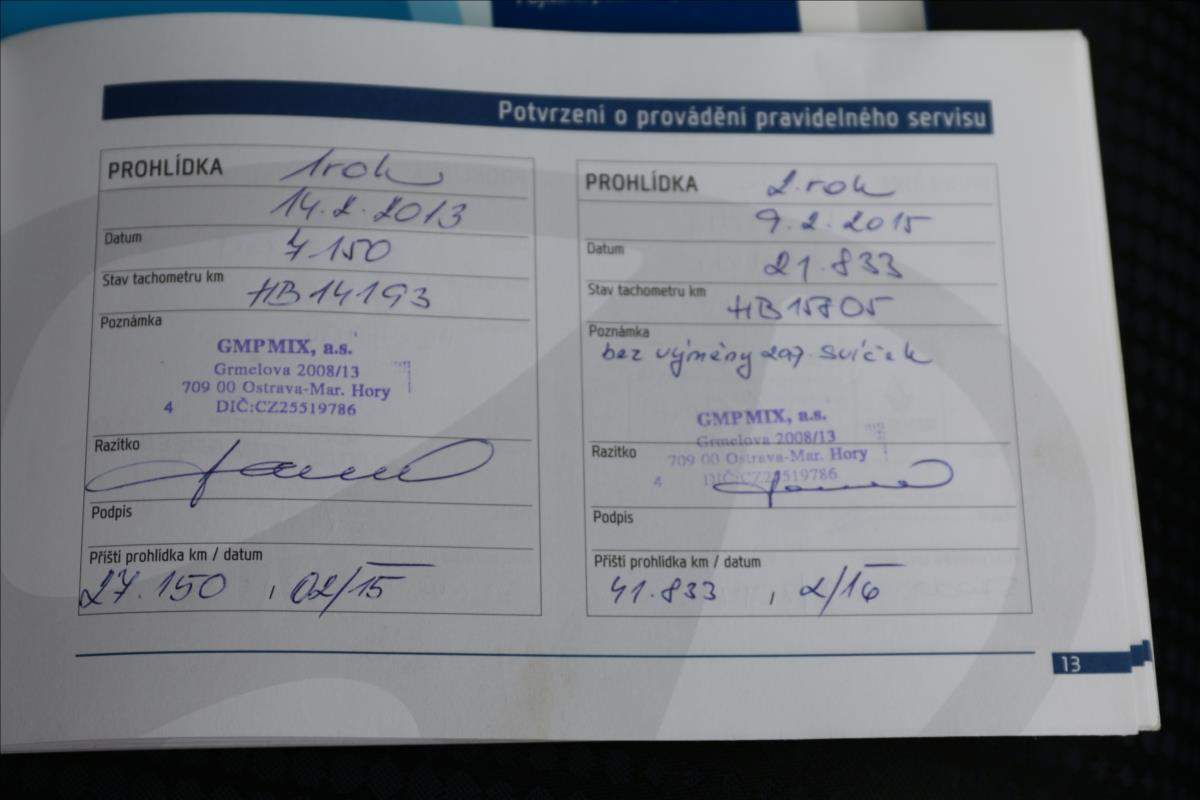 Potvrzení o provádění pravidelného servisu
PROHLÍDKA 1rok
14.2.2013
Datum
7 150
Stav tachometru km
HB14193
Poznámka
GMPMIX, a.s.
Grmelova 2008/13
709 00 Ostrava-Mar. Hory
4 DIČ:CZ25519786
Razítko
Podpis
Příští prohlídka km / datum
27.150 , 02/15
PROHLÍDKA 2.rok
9.2.2015
Datum
21.833
Stav tachometru km
HB15805
Poznámka
bez výměny zap. svíček
GMPMIX, a.s.
Grmelova 2008/13
Razítko
709 00 Ostrava-Mar. Hory
4 DIČ:CZ25519786
Podpis
Příští prohlídka km / datum
41.833 , 2/16
13